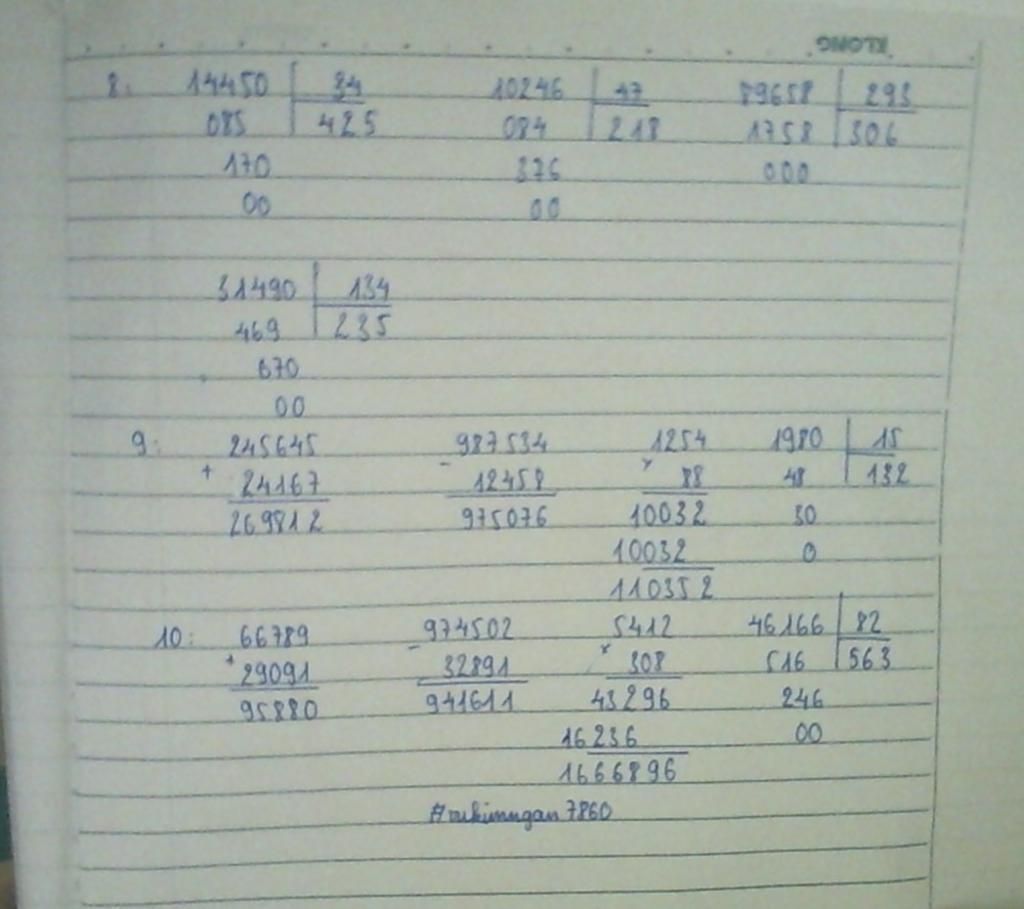 KLONG
8: 14450 34 10246 47 89658 293
085 425 084 218 1758 306
170 376 000
00 00
31490 134
469 235
670
00
9: 245645 987534 1254 1980 15
+ 24167 - 12458 x 88 48 132
269812 975076 10032 30
10032 0
110352
10: 66789 974502 5412 46166 82
+ 29091 - 32891 x 308 516 563
95880 941611 43296 246
16236 00
1666896